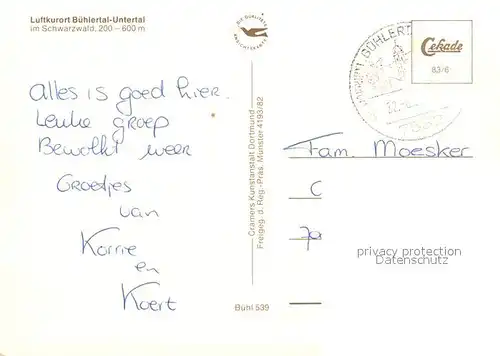 Luftkurort Bühlertal-Untertal
im Schwarzwald, 200 – 600 m
DIE QUALITÄTS
ANSICHTSKARTE
Cekade
83/6
Alles is goed hier.
Leuke groep
Bewolkt weer
Groetjes
van
Korrie
en
Koert
Cramers Kunstanstalt Dortmund
Freigeg. d. Reg.-Präs. Münster 4193/82
Bühl 539
Fam. Moesker
C
Ja
privacy protection
Datenschutz